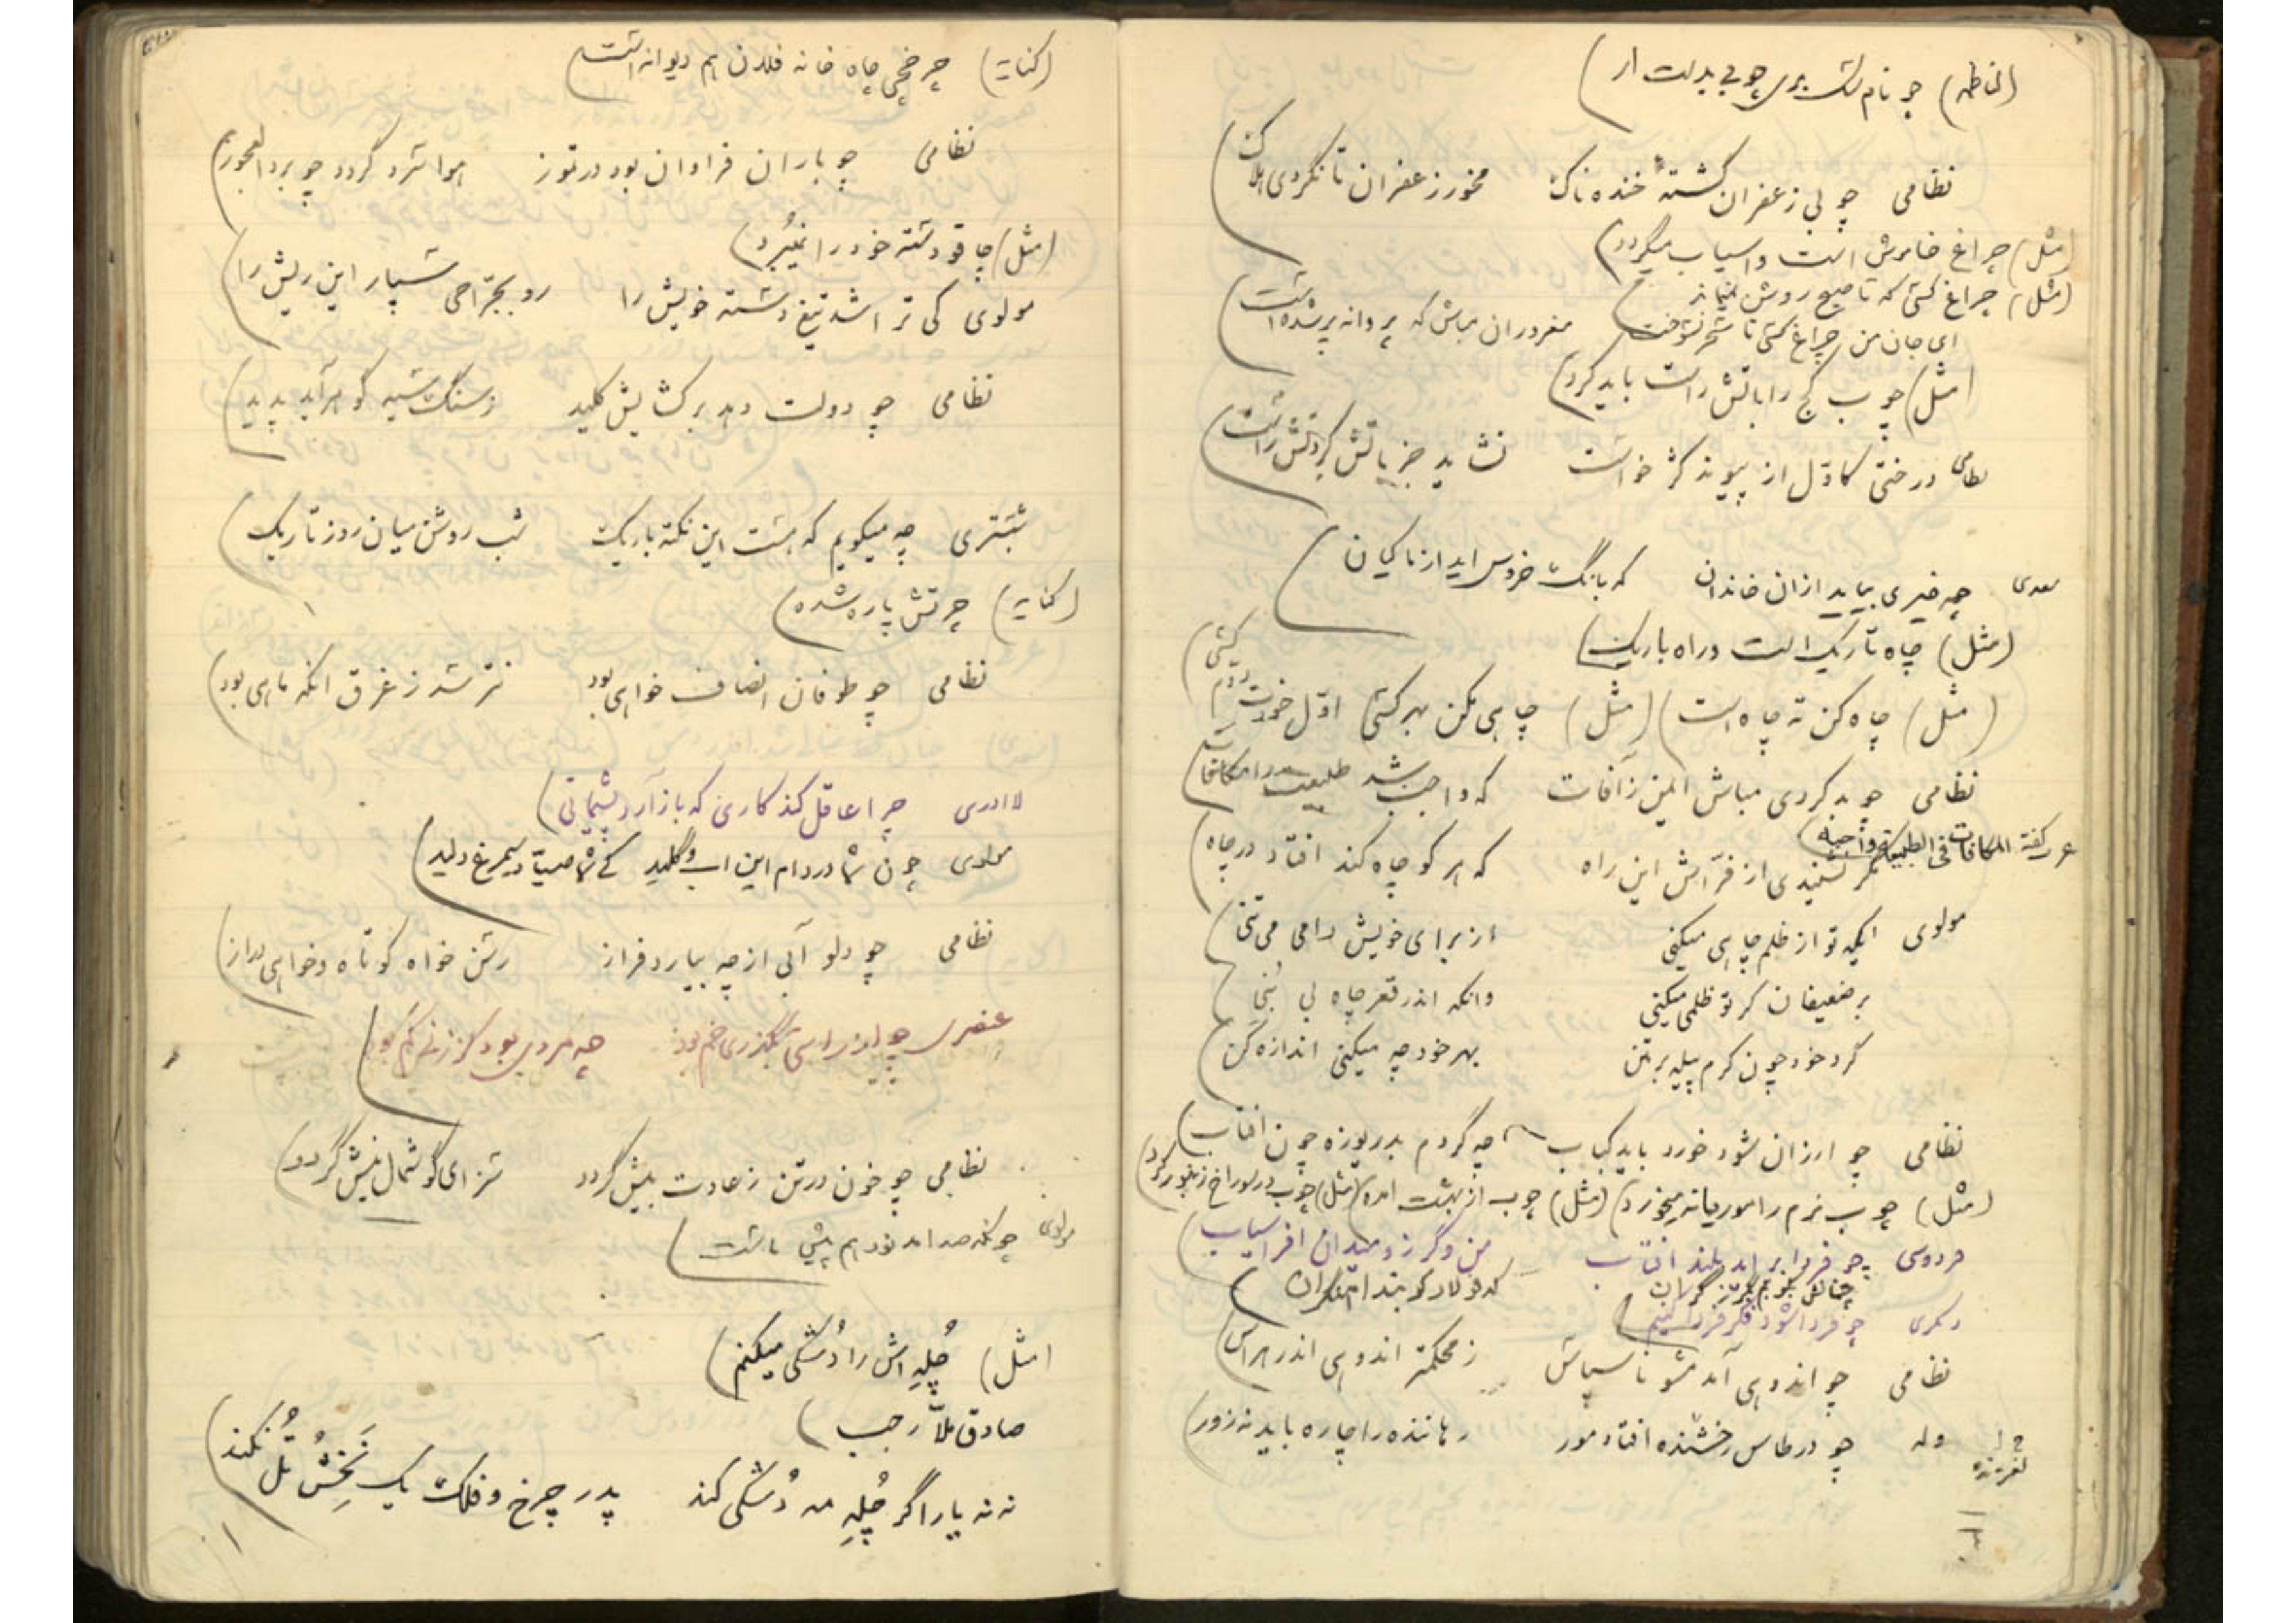 (لناظمه) چو نام سگ بری چوبی بدست ار
نظامی چو بی زعفران گشتهٔ خنده ناک مخور زعفران تا نگردی هلاک
(مثل) چراغ خاموش است و اسیاب میگردد
(مثل) چراغ کسی که تا صبح روشن نماند
ای جان من چراغ کسی تا سحر نسوخت مغرور ان مباش که پروانه پر شده است
(مثل) چوب کج را باتش راست باید کرد
نظامی درختی کاوّل از پیوند کژ خواست نشاید جز باتش کردنش راست
سعدی چه خیری بیاید ازان خاندان که بانگ خروس اید از ماکیان
(مثل) چاه تاریک است و راه باریک
(مثل) چاه کن ته چاه است (مثل) چاهی مکن بهر کسی اوّل خودت دوّم کسی
نظامی چو بد کردی مباش ایمن ز آفات که واجب شد طبیعت را مکافات
عرب گفته المکافات فی الطبیعة واجبة
مگر نشنیدی از فرّاش این راه که هر کو چاه کند افتاد در چاه
مولوی ایکه تو از ظلم چاهی میکنی از برای خویش دامی می تنی
بر ضعیفان گر تو ظلمی میکنی وانکه اندر قعر چاه بی بُنی
گرد خود چون کرم پیله بر متن بهر خود چه میکنی اندازه کن
نظامی چو ارزان شود خورد باید کباب چه گردم بدریوزه چون افتاب
(مثل) چوب نرم را موریانه میخورد (مثل) چوب از بهشت امده (مثل) چوب در سوراخ زنبور کرد
فردوسی چو فردا بر اید بلند افتاب من و گرز و میدان افراسیاب
چنانش بکوبم بگرز گران که فولاد کوبند اهنگران
دیگری چو فردا شود فکر فردا کنیم
نظامی چو اندوهی آمد مشو ناسپاس ز محکمتر اندوهی اندر هراس
وله چو در طاس رخشنده افتاد مور رهاننده را چاره باید نه زور
لغزنده
(کنایه) چرخچی چاه خانه فلان هم دیوانه است
نظامی چو باران فراوان بود در تموز هوا سرد گردد چو برد العجوز
(مثل) چاقو دسته خود را نمیبُرد
مولوی کی تراشد تیغ دسته خویش را رو بجرّاحی سپار این ریش را
نظامی چو دولت دهد بر گشایش کلید ز سنگ سیه گوهر آید پدید
شبستری چه میگویم که هست این نکته باریک شب روشن میان روز تاریک
(کنایه) چرتش پاره شده
نظامی چو طوفان انصاف خواهی بود نترسد ز غرق انکه ماهی بود
لاادری چرا عاقل کند کاری که باز آرد پشیمانی
مولوی چون شما در دام این اب و گلید کی شما صیّاد سیمرغ دلید
نظامی چو دلو آبی از چه بیارد فراز رسن خواه کوتاه و خواهی دراز
عنصری چو از راستی بگذری خم بود چه مردی بود کز زنی کم بود
نظامی چو خون در تن ز عادت بیش گردد سزای گوشمال نیش گردد
مولوی چونکه صد امد نود هم پیش ماست
(مثل) چُلهِ اش را دُمشکی میکنم
صادق ملّا رجب
ننه یارا گر چُلهِ مه دُمشکی کند پدر چرخ و فلک یک نَخِشُ تُل نکند